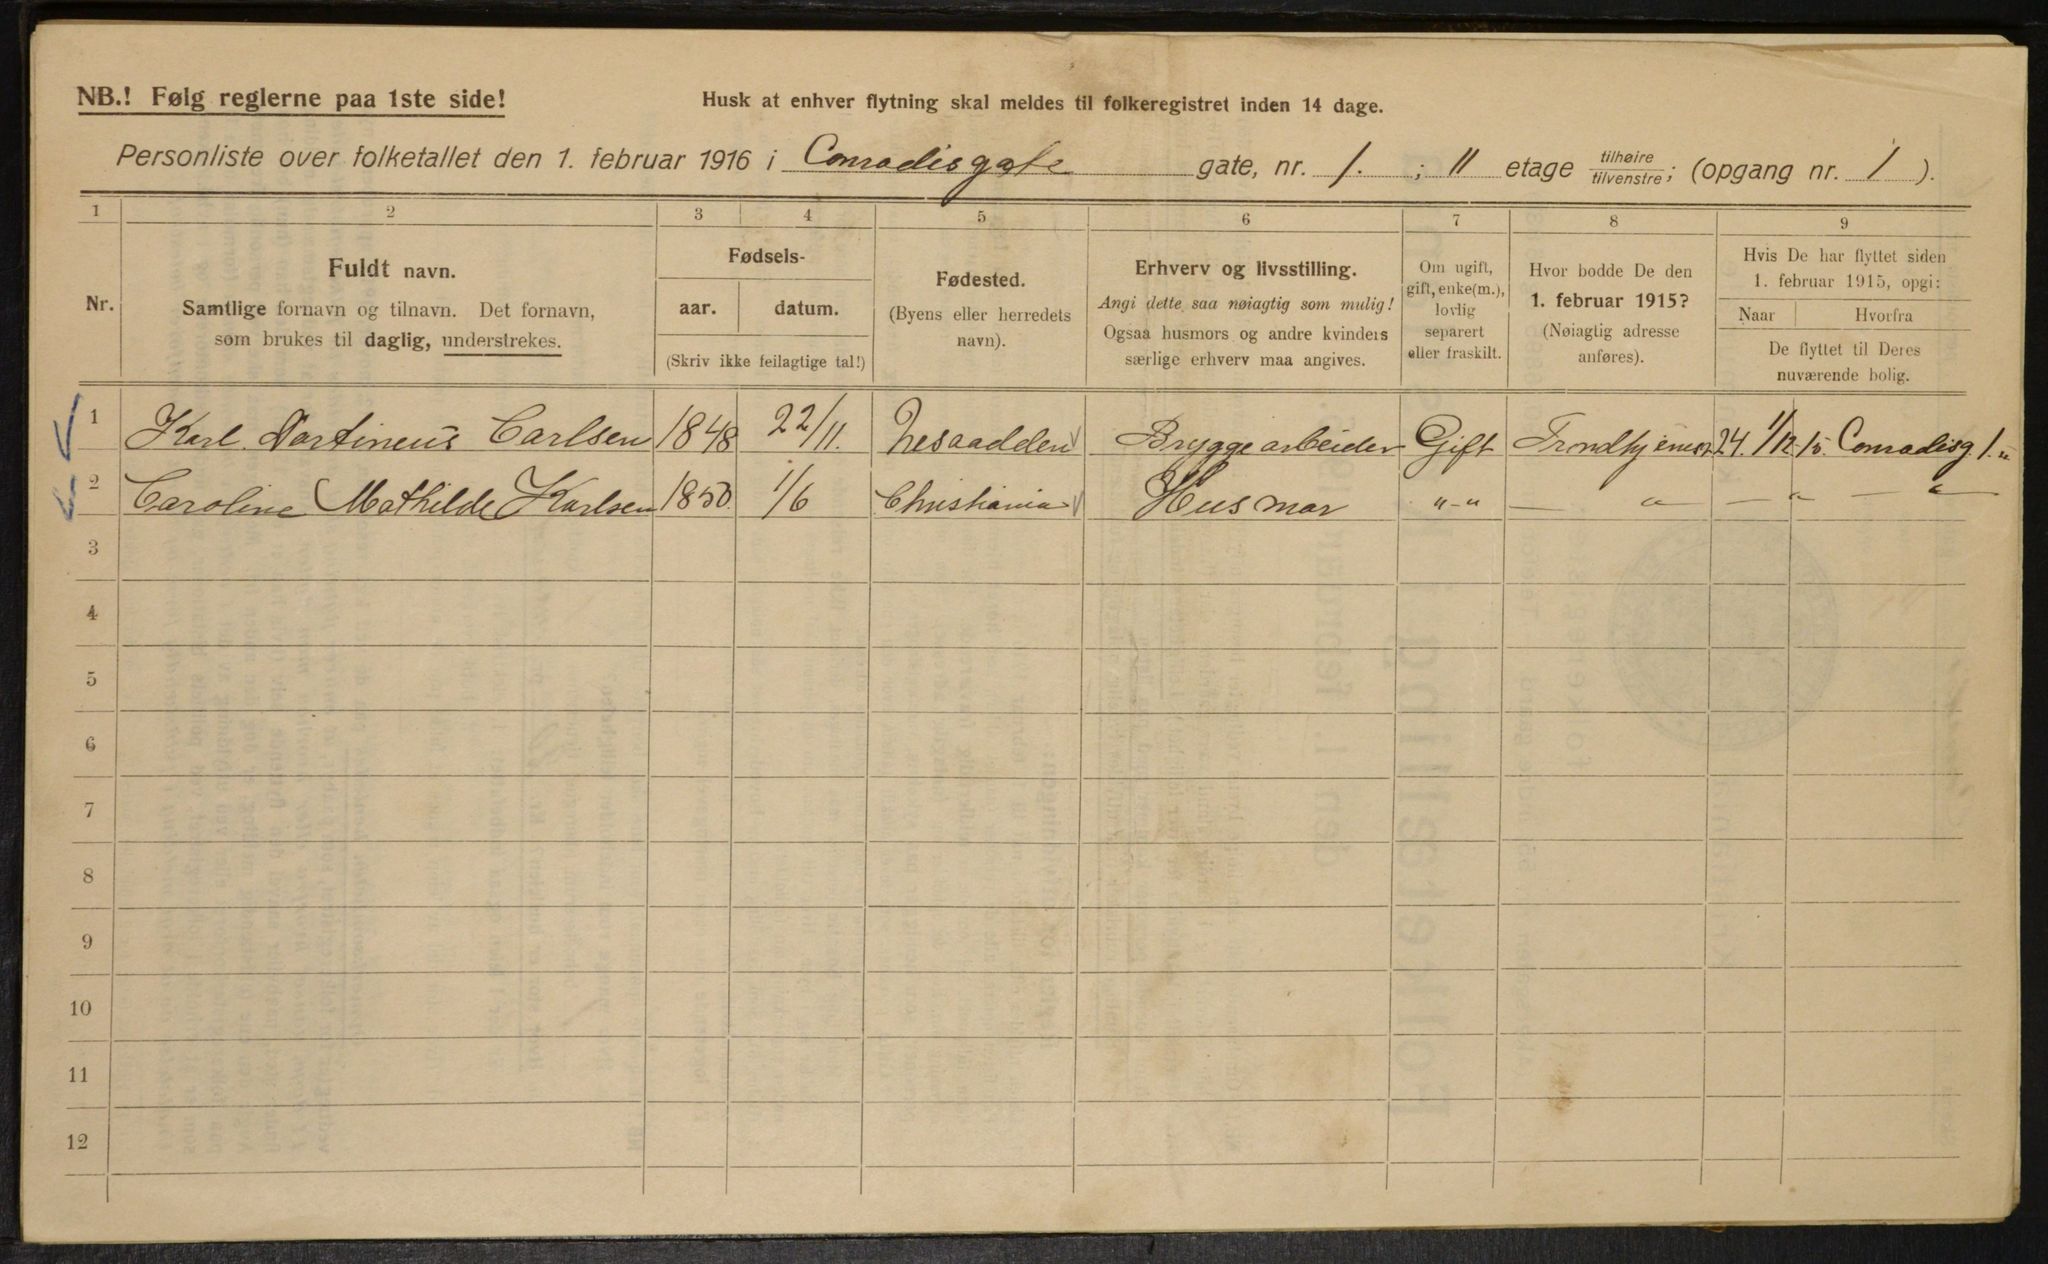 NB.! Følg reglerne paa 1ste side!
Husk at enhver flytning skal meldes til folkeregistret inden 14 dage.
Personliste over folketallet den 1. februar 1916 i Conradisgate gate, nr. 1. ; II etage tilhøire/tilvenstre; (opgang nr. 1 ).
1 2 3 4 5 6 7 8 9
Nr.
Fuldt navn.
Samtlige fornavn og tilnavn. Det fornavn,
som brukes til daglig, understrekes.
Fødsels-
aar. datum.
(Skriv ikke feilagtige tal!)
Fødested.
(Byens eller herredets
navn).
Erhverv og livsstilling.
Angi dette saa nøiagtig som mulig!
Ogsaa husmors og andre kvinders
særlige erhverv maa angives.
Om ugift,
gift, enke(m.),
lovlig
separert
eller fraskilt.
Hvor bodde De den
1. februar 1915?
(Nøiagtig adresse
anføres).
Hvis De har flyttet siden
1. februar 1915, opgi:
Naar Hvorfra
De flyttet til Deres
nuværende bolig.
1 Karl Martineus Carlsen 1848 22/11. Nesaadden Bryggearbeider Gift Trondhjemsv 24. 1/12 15. Conradisg. 1.
2 Caroline Mathilde Karlsen 1850 1/6 Christiania Husmor " - " — " — " — "
3
4
5
6
7
8
9
10
11
12